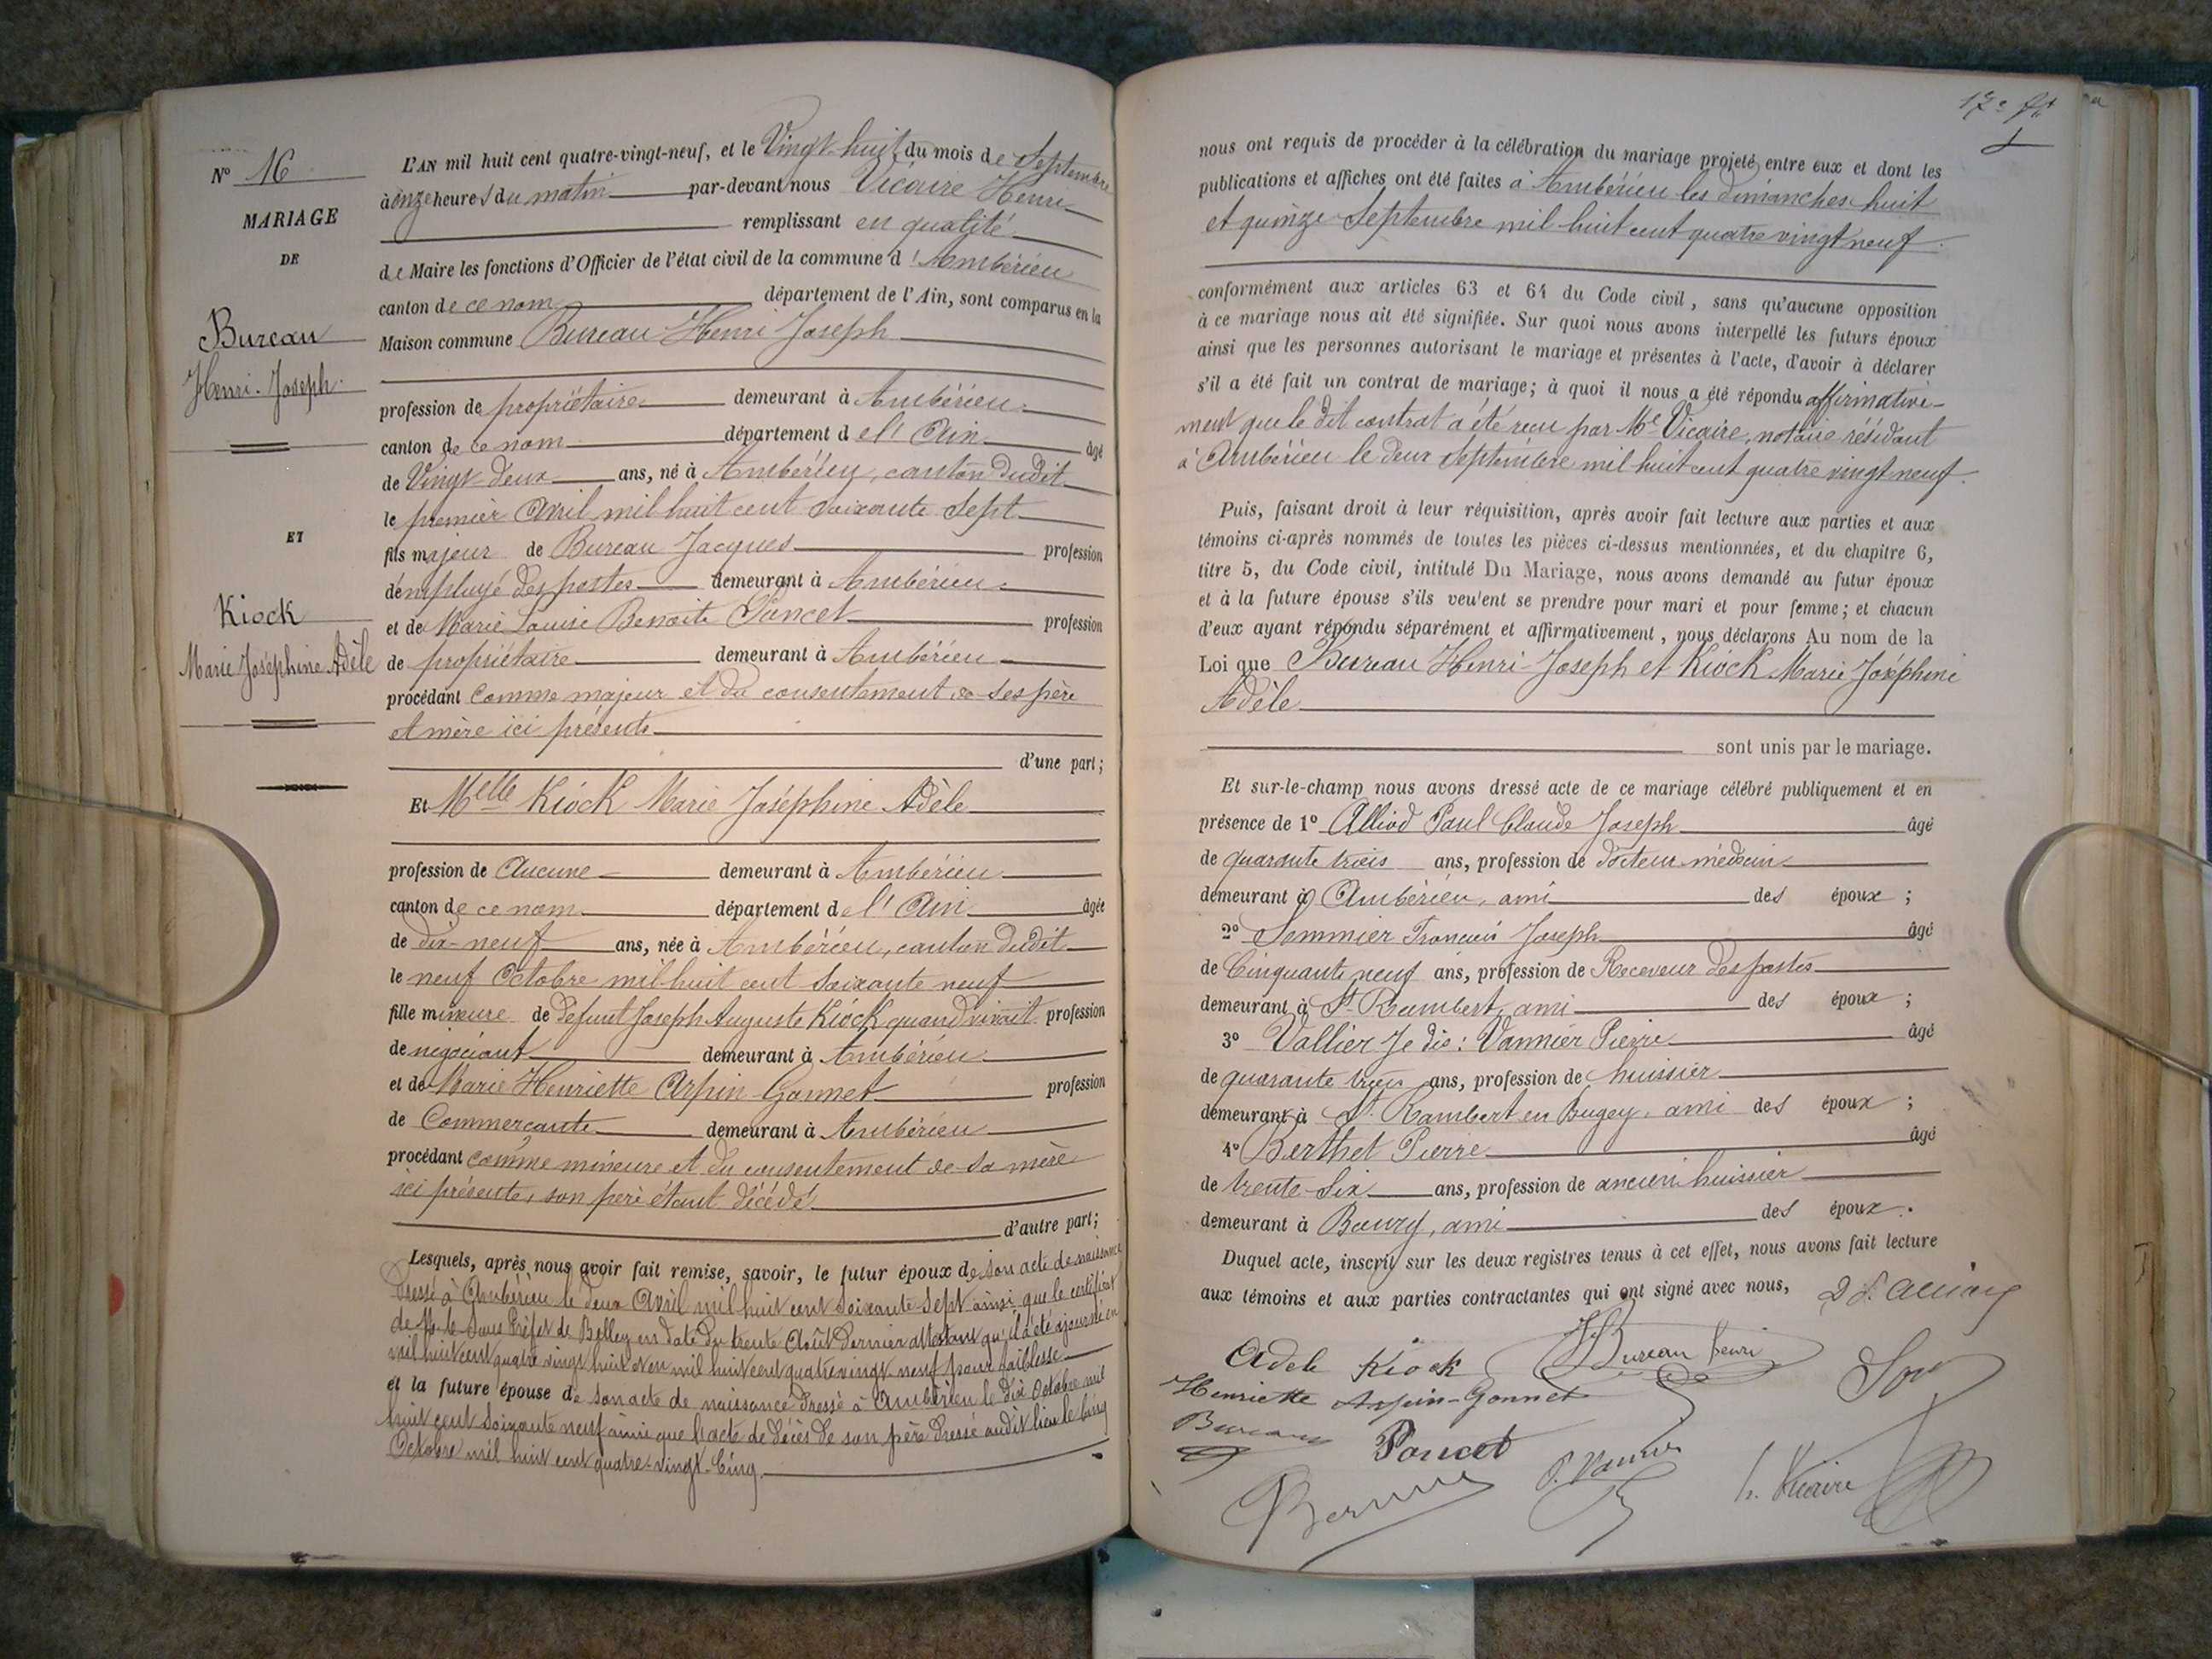 N° 16
MARIAGE
DE
Bureau
Henri-Joseph
ET
Kiock
Marie Joséphine Adèle
L'AN mil huit cent quatre-vingt-neuf, et le Vingt-huit du mois de Septembre
à onze heures du matin par-devant nous Vicaire Henri
remplissant en qualité
de Maire les fonctions d'Officier de l'état civil de la commune d'Ambérieu
canton de ce nom département de l'Ain, sont comparus en la
Maison commune Bureau Henri Joseph
profession de propriétaire demeurant à Ambérieu
canton de ce nom département de l'Ain âgé
de Vingt-deux ans, né à Ambérieu, canton dudit
le premier Avril mil huit cent soixante sept
fils majeur de Bureau Jacques profession
d'employé des postes demeurant à Ambérieu
et de Marie Louise Benoite Poncet profession
de propriétaire demeurant à Ambérieu
procédant comme majeur et du consentement de ses père
et mère ici présents
d'une part;
Et Melle Kiock Marie Joséphine Adèle
profession de Aucune demeurant à Ambérieu
canton de ce nom département de l'Ain âgée
de dix-neuf ans, née à Ambérieu, canton dudit
le neuf Octobre mil huit cent soixante neuf
fille mineure de défunt Joseph Auguste Kiock quand vivait profession
de négociant demeurant à Ambérieu
et de Marie Henriette Arpin-Gonnet profession
de Commerçante demeurant à Ambérieu
procédant comme mineure et du consentement de sa mère
ici présente, son père étant décédé
d'autre part;
Lesquels, après nous avoir fait remise, savoir, le futur époux de son acte de naissance
dressé à Ambérieu le deux Avril mil huit cent soixante-sept ainsi que le certificat
de Mr le Sous Préfet de Belley en date du trente Août dernier attestant qu'il a été ajourné en
mil huit cent quatre vingt huit et en mil huit cent quatre vingt-neuf pour faiblesse
et la future épouse de son acte de naissance dressé à Ambérieu le dix Octobre mil
huit cent soixante neuf ainsi que l'acte de décès de son père dressé audit lieu le cinq
Octobre mil huit cent quatre-vingt-cinq.
17e
nous ont requis de procéder à la célébration du mariage projeté entre eux et dont les
publications et affiches ont été faites à Ambérieu les dimanches huit
et quinze Septembre mil huit cent quatre vingt neuf.
conformément aux articles 63 et 64 du Code civil, sans qu'aucune opposition
à ce mariage nous ait été signifiée. Sur quoi nous avons interpellé les futurs époux
ainsi que les personnes autorisant le mariage et présentes à l'acte, d'avoir à déclarer
s'il a été fait un contrat de mariage; à quoi il nous a été répondu affirmative-
ment que le dit contrat a été reçu par Me Vicaire, notaire résidant
à Ambérieu le deux septembre mil huit cent quatre vingt neuf.
Puis, faisant droit à leur réquisition, après avoir fait lecture aux parties et aux
témoins ci-après nommés de toutes les pièces ci-dessus mentionnées, et du chapitre 6,
titre 5, du Code civil, intitulé Du Mariage, nous avons demandé au futur époux
et à la future épouse s'ils veulent se prendre pour mari et pour femme; et chacun
d'eux ayant répondu séparément et affirmativement, nous déclarons Au nom de la
Loi que Bureau Henri-Joseph et Kiock Marie Joséphine
Adèle
sont unis par le mariage.
Et sur-le-champ nous avons dressé acte de ce mariage célébré publiquement et en
présence de 1° Alliod Paul Claude Joseph âgé
de quarante trois ans, profession de docteur-médecin
demeurant à Ambérieu, ami des époux ;
2° Sommier François Joseph âgé
de Cinquante neuf ans, profession de Receveur des postes
demeurant à St Rambert, ami des époux ;
3° Vallier Je dis : Vannier Pierre âgé
de quarante trois ans, profession de huissier
demeurant à St Rambert en Bugey, ami des époux ;
4° Berthet Pierre âgé
de trente-six ans, profession de ancien huissier
demeurant à Bourg, ami des époux.
Duquel acte, inscrit sur les deux registres tenus à cet effet, nous avons fait lecture
aux témoins et aux parties contractantes qui ont signé avec nous,
Adele Kiock
Bureau henri
Henriette Arpin-Gonnet
Bureau
Poncet
P. Vannier
h. Vicaire